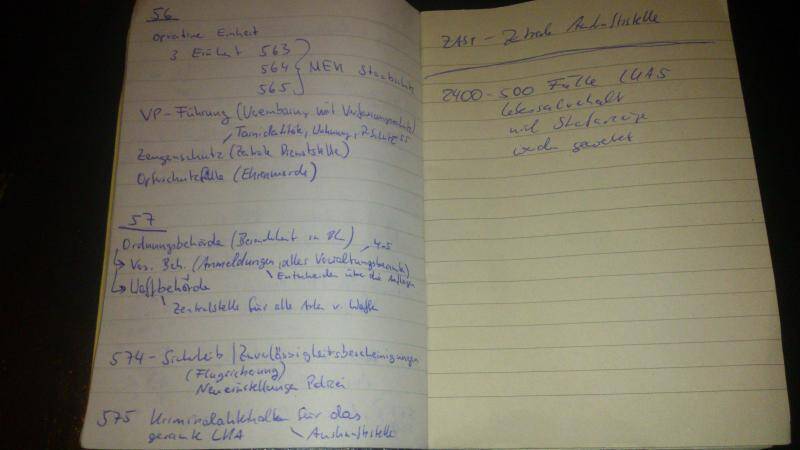 56
Oprative Einheit
3 Einheit 563
564 } MEK Staatsschutz
565
VP-Führung (Vereinbarung mit Verfassungsschutz)
Tarnidentität, Wohnung, Zschutz SS
Zeugenschutz (Zentrale Dienststelle)
Opferschutzfälle (Ehrenmorde)
57
Ordnungsbehörde (Besonderheit in BL)
4-5
Vers. Beh. (Anmeldungen, alles Verwaltungsbeamte)
Entscheiden über die Auflagen
Waffbehörde
Zentralstelle für alle Arten v. Waffen
574 - Sicherheit / Zuverlässigkeitsbescheinigungen
(Flugsicherung)
Neueinstellungen Polizei
575 Kriminalaktenhalten für das
gesamte LKA
Auskunftsstelle
ZAST - Zentrale Auskunftsstelle
2400-500 Fälle LKA5
mit Strafanzeige
werden